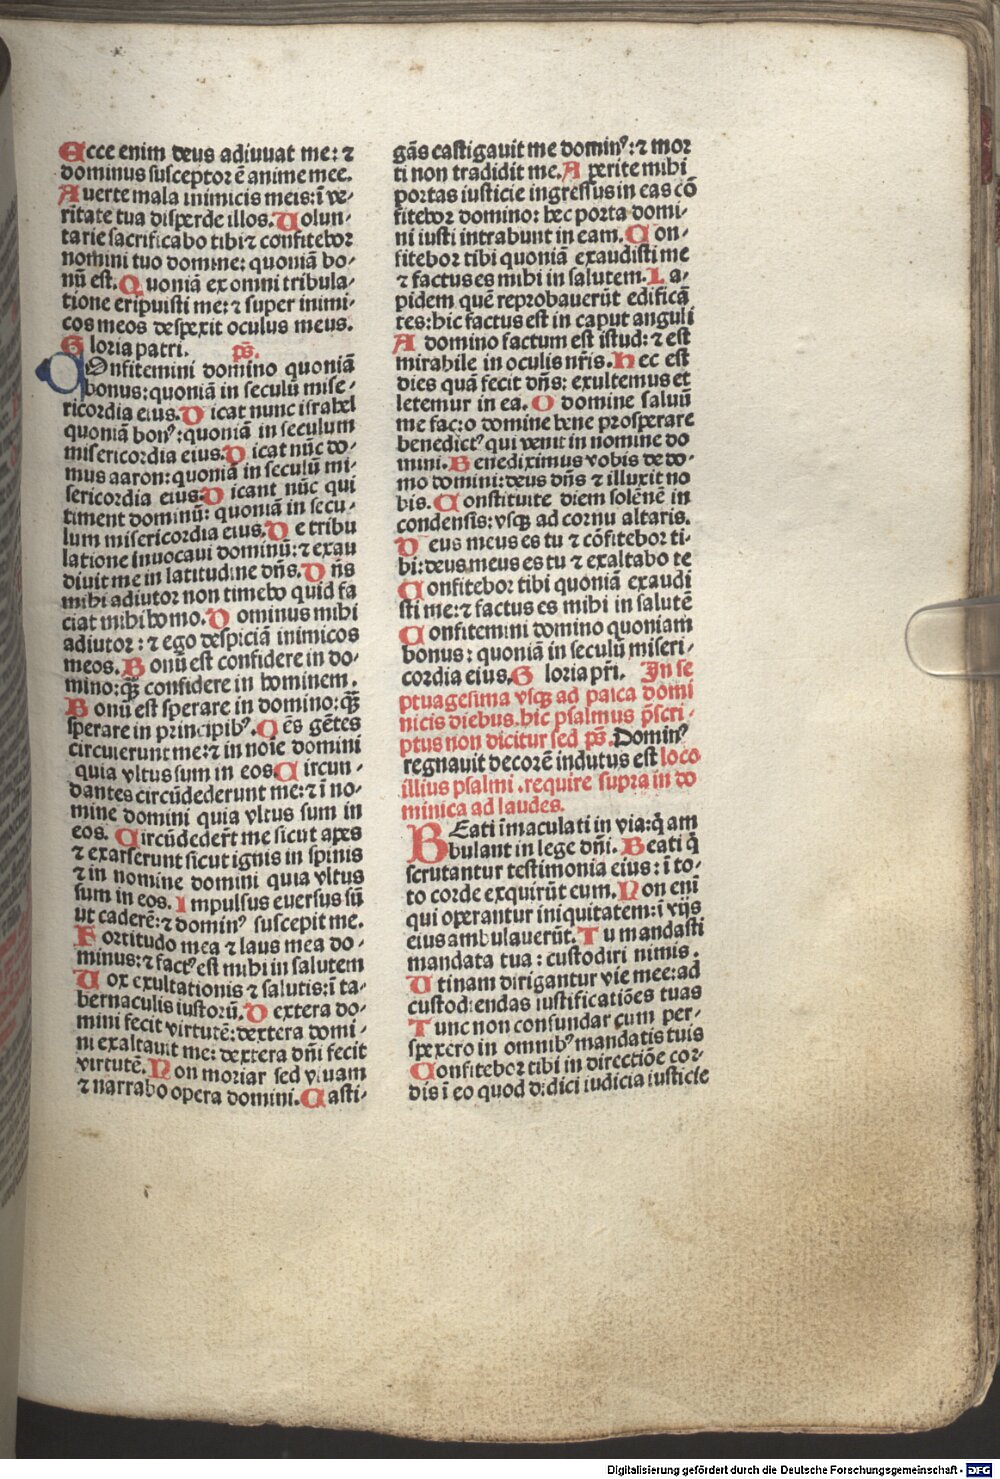 Ecce enim deus adiuvat me: ⁊
dominus susceptor ē anime mee.
Auerte mala inimicis meis: ī ve-
ritate tua disperde illos. Uolun-
tarie sacrificabo tibi ⁊ confitebor
nomini tuo domine: quoniā bo-
nū est. Quoniā ex omni tribula-
tione eripuisti me: ⁊ super inimi-
cos meos despexit oculus meus.
Gloria patri. ps̄.
COnfitemini domino quoniā
bonus: quoniā in seculū mise-
ricordia eius. Dicat nunc israhel
quoniā bonꝰ: quoniā in seculum
misericordia eius. Dicat nūc do-
mus aaron: quoniā in seculū mi-
sericordia eius. Dicant nūc qui
timent dominū: quoniā in secu-
lum misericordia eius. De tribu
latione inuocaui dominū: ⁊ exau
diuit me in latitudine dñs. Dñs
mihi adiutor non timebo quid fa
ciat mihi homo. Dominus mihi
adiutor: ⁊ ego despiciā inimicos
meos. Bonū est confidere in do-
mino: qꝫ confidere in homine.
Bonū est sperare in domino: qꝫ
sperare in principibꝰ. Oēs gētes
circuierunt me: ⁊ in noie domini
quia vltus sum in eos. Circun-
dantes circūdederunt me: ⁊ ī no-
mine domini quia vltus sum in
eos. Circūdeder̄t me sicut apes
⁊ exarserunt sicut ignis in spinis
⁊ in nomine domini quia vltus
sum in eos. Impulsus euersus sū
ut caderē: ⁊ dominꝰ suscepit me.
Fortitudo mea ⁊ laus mea do-
minus: ⁊ factꝰ est mihi in salutem
Uox exultationis ⁊ salutis: ī ta-
bernaculis iustorū. Dextera do-
mini fecit virtutē: dextera domi-
ni exaltauit me: dextera dñi fecit
virtutē. Non moriar sed viuam
⁊ narrabo opera domini. Casti-
gās castigauit me dominꝰ: ⁊ mor
ti non tradidit me. Aperite mihi
portas iusticie ingressus in eas cō
fitebor domino: hec porta domi-
ni iusti intrabunt in eam. Con-
fitebor tibi quoniā exaudisti me
⁊ factus es mihi in salutem. La-
pidem quē reprobauerūt edificā
tes: hic factus est in caput anguli
A domino factum est istud: ⁊ est
mirabile in oculis nr̄is. Hec est
dies quā fecit dñs: exultemus et
letemur in ea. O domine saluū
me fac: o domine bene prosperare
benedictꝰ qui venit in nomine do
mini. Benediximus vobis de do-
mo domini: deus dñs ⁊ illuxit no
bis. Constituite diem solēnē in
condensis: vsqꝫ ad cornu altaris.
Deus meus es tu ⁊ cōfitebor ti-
bi: deus meus es tu ⁊ exaltabo te
Confitebor tibi quoniā exaudi
sti me: ⁊ factus es mihi in salutē
Confitemini domino quoniam
bonus: quoniā in seculū miseri-
cordia eius. Gloria pr̄i. In se
ptuagesima vsqꝫ ad pasca domi
nicis diebus. hic psalmus p̄scri-
ptus non dicitur sed ps̄. Dominꝰ
regnauit decorē indutus est loco
illius psalmi. require supra in do
minica ad laudes.
BEati īmaculati in via: q̄ am
bulant in lege dñi. Beati q̄
scrutantur testimonia eius: ī to-
to corde exquirūt eum. Non enī
qui operantur iniquitatem: ī vijs
eius ambulauerūt. Tu mandasti
mandata tua: custodiri nimis.
Utinam dirigantur vie mee: ad
custodiendas iustificatiōes tuas
Tunc non confundar cum per-
spexero in omnibꝰ mandatis tuis
Confitebor tibi in directiōe cor-
dis ī eo quod didici iudicia iusticie
Digitalisierung gefördert durch die Deutsche Forschungsgemeinschaft - DFG